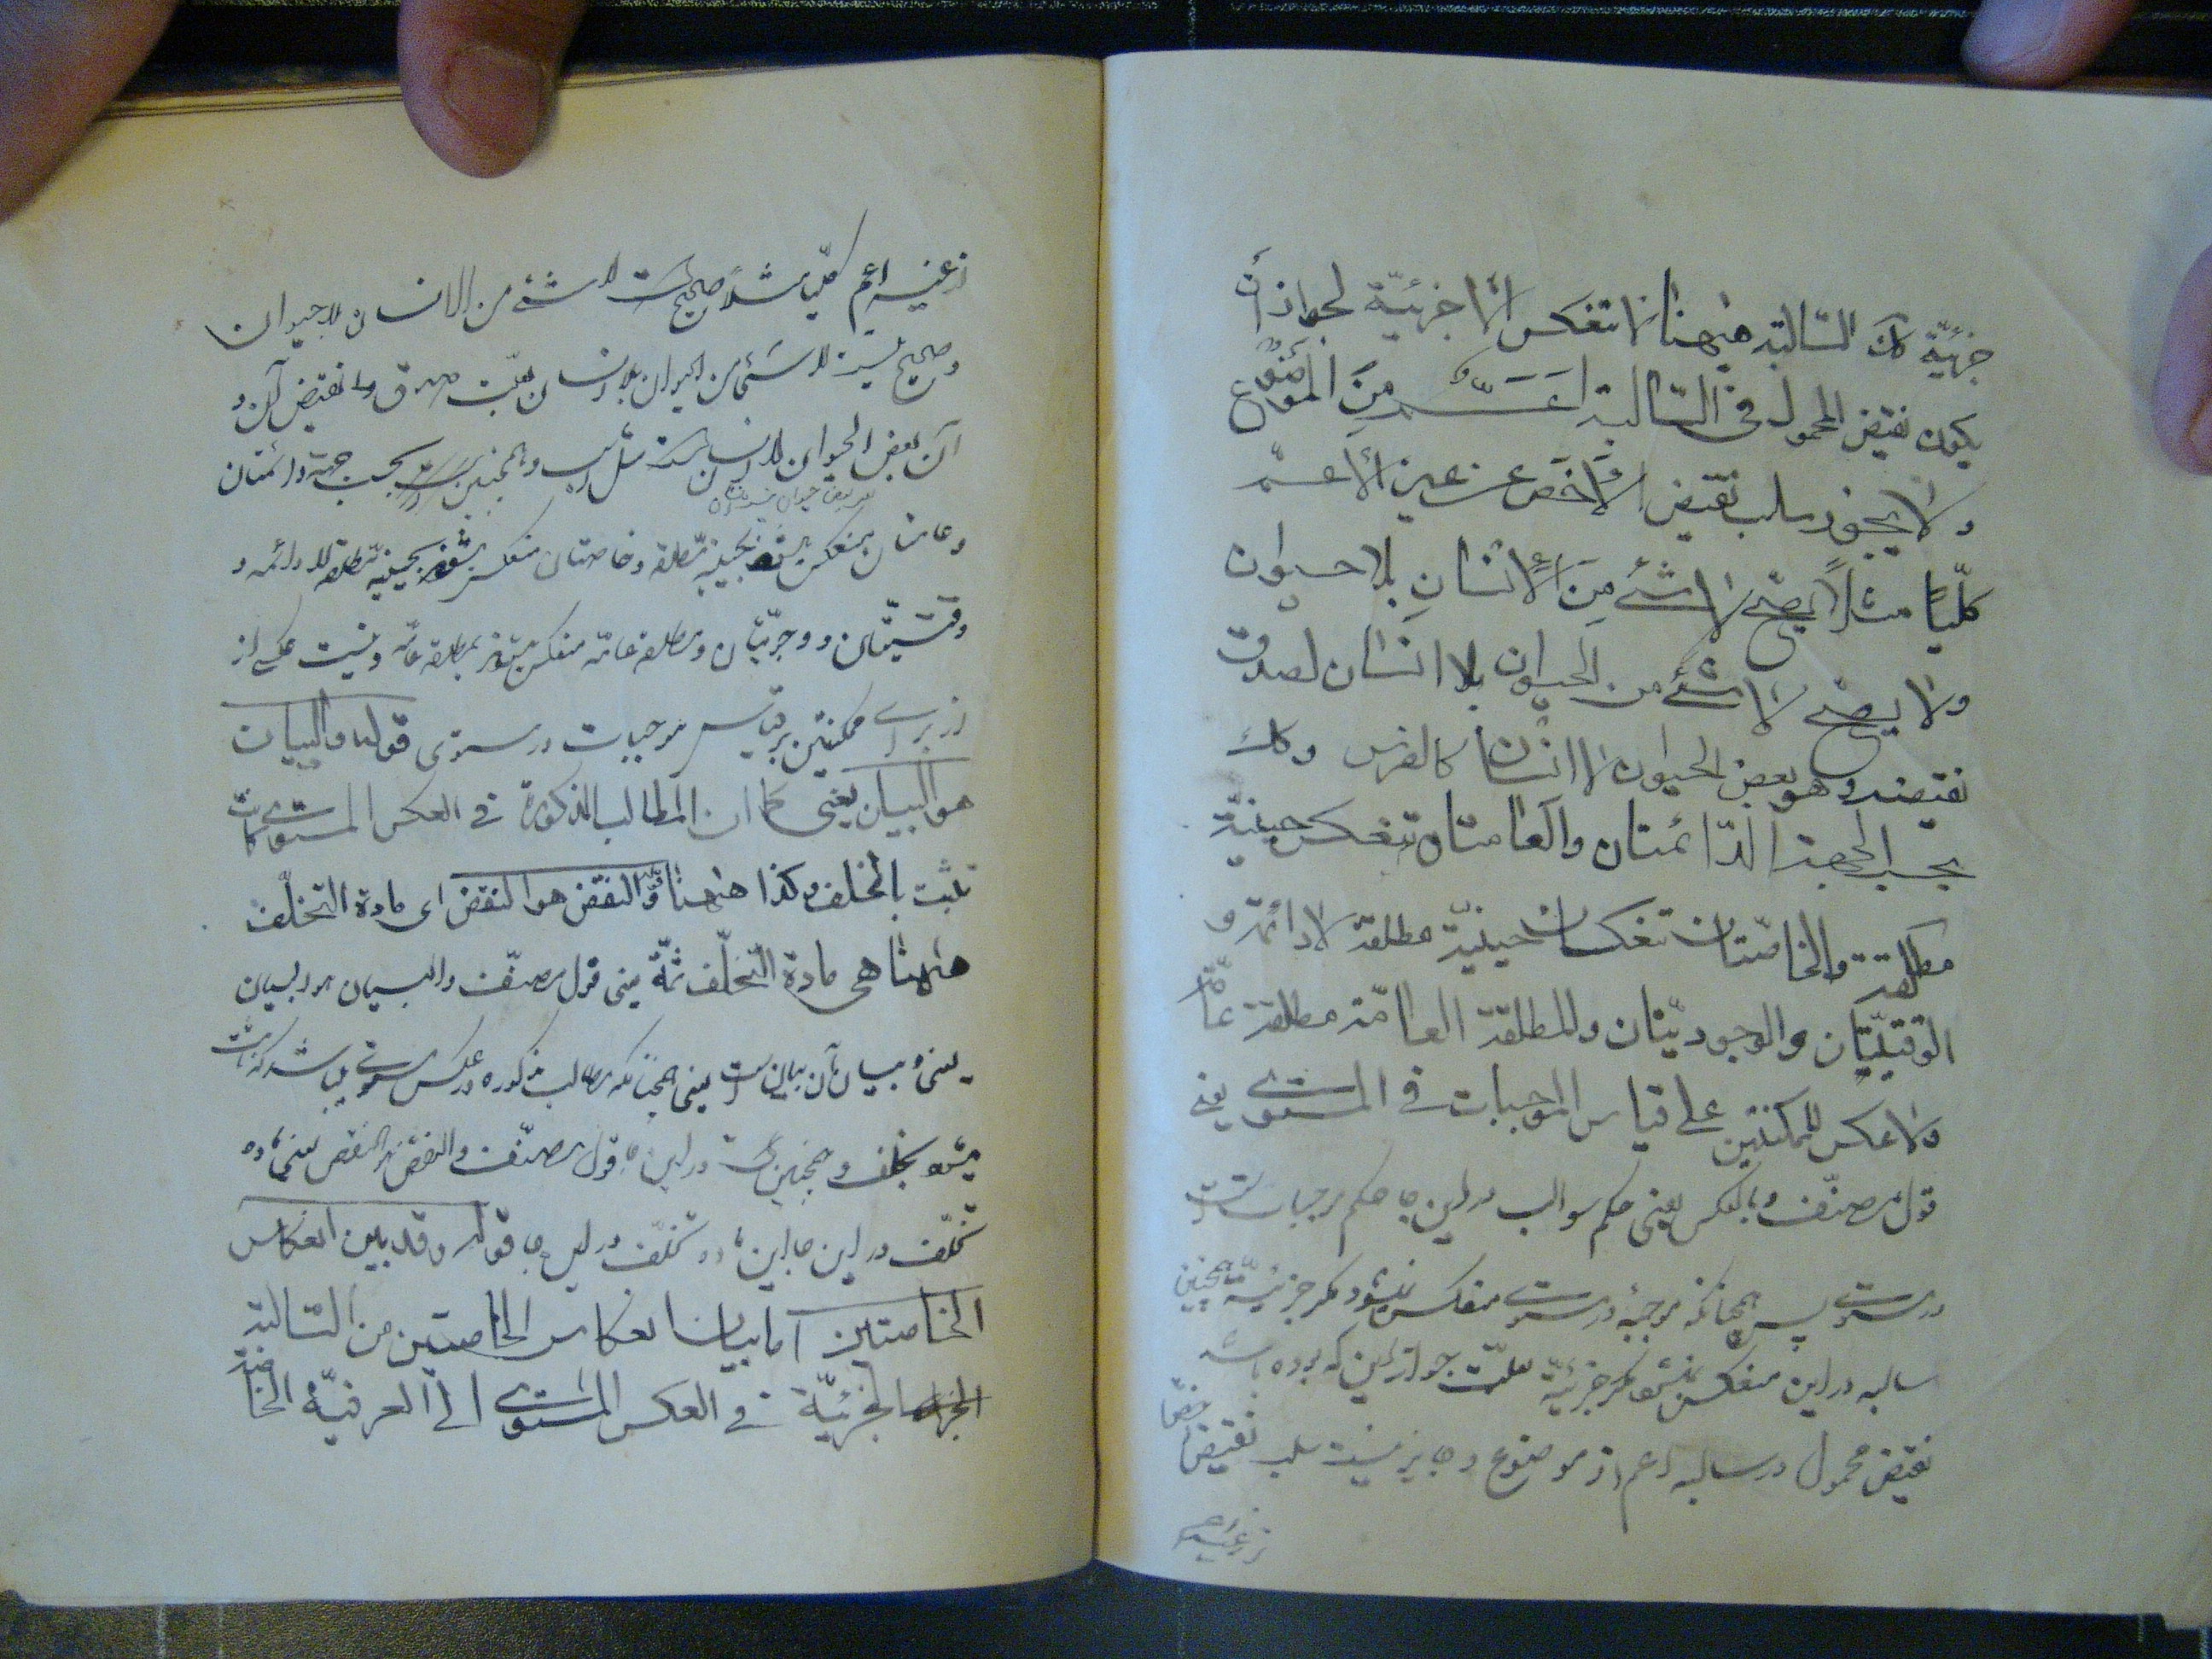 جزئيّة كك السّالبة هيهنا لا تنعكس الّا جزئيّة لجواز أن
يكون نقيض المحمول فى السّالبة اعَمَّ مِنَ الموضوع
ولا يجوز سلب نقيض الأخصّ عن عين الأعمّ
كلّيًا مثلاً يصحّ لا شئ مِنَ الأنسان بلا حيوان
ولا يصحّ لا شئ من الحيوان بلا انسان لصدق
نقيضه وهو بعض الحيوان لا انسان كالفرس وكك
بحسب الجهة الدّائمتان والعامتان تنعكس حينيّة
مطلقة والخاصّتان تنعكسان حينيّة مطلقة لا دائمة و
الوقتيّتان والوجوديّتان والمطلقة العامّة مطلقة عامّة
ولا عكس للممكنتين على قياس الموجبات فى المستوى يعنى
قول مصنّف وبالعكس يعنى حكم سوالب در اين جا حكم موجبات است
در مستوى پس همچنانكه موجبه در مستوى منعكس نميشود مگر جزئيّة همچنين
سالبه در اين منعكس نميشود مگر جزئيّة بعلّت جواز اين كه بوده باشد
نقيض محمول در سالبه اعم از موضوع و جايز نيست سلب نقيض اخص
از عين اعم
از عين اعم كلّيا مثلاً صحيح است لا شئ من الانسان بلا حيوان
و صحيح نيست لا شئ من الحيوان بلا انسان بعلّت صدق نقيض آن و
آن بعض الحيوان لا انسان است مثل فرس و همچنين است بحسب جهة دائمتان
و عامتان منعكس ميشود بحينيّه مطلقه و خاصتان منعكس ميشود بحينيّه مطلقه لا دائمه و
وقتيّتان و وجوديّتان و مطلقه عامّه منعكس ميشود بمطلقه عامّه و نيست عكس از
از براى ممكنتين بر قياس موجبات در مستوى قوله والبيان
هو البيان يعنى كما ان المطالب المذكورة فى العكس المستوى كانت
تثبت بالخلف وكذا هيهنا قوله والنقض هو النقض اى مادة التخلّف
هيهنا هى مادة التّخلّف ثمّة يعنى قول مصنّف والبيان هو البيان
يعنى بيان آن بيان است يعنى همچنانكه مطالب مذكوره در عكس مستوى ثابت
ميشود بخلف و همچنين است در اين جا قول مصنّف والنقض هو النقض يعنى ماده
تخلّف در اين جا اين ماده تخلّف در اين جا قوله وقد بيّن انعكاس
الخاصتين اما بيان انعكاس الخاصتين من السّالبة
الجزئيّة فى العكس المستوى الى العرفيّة الخاصّة